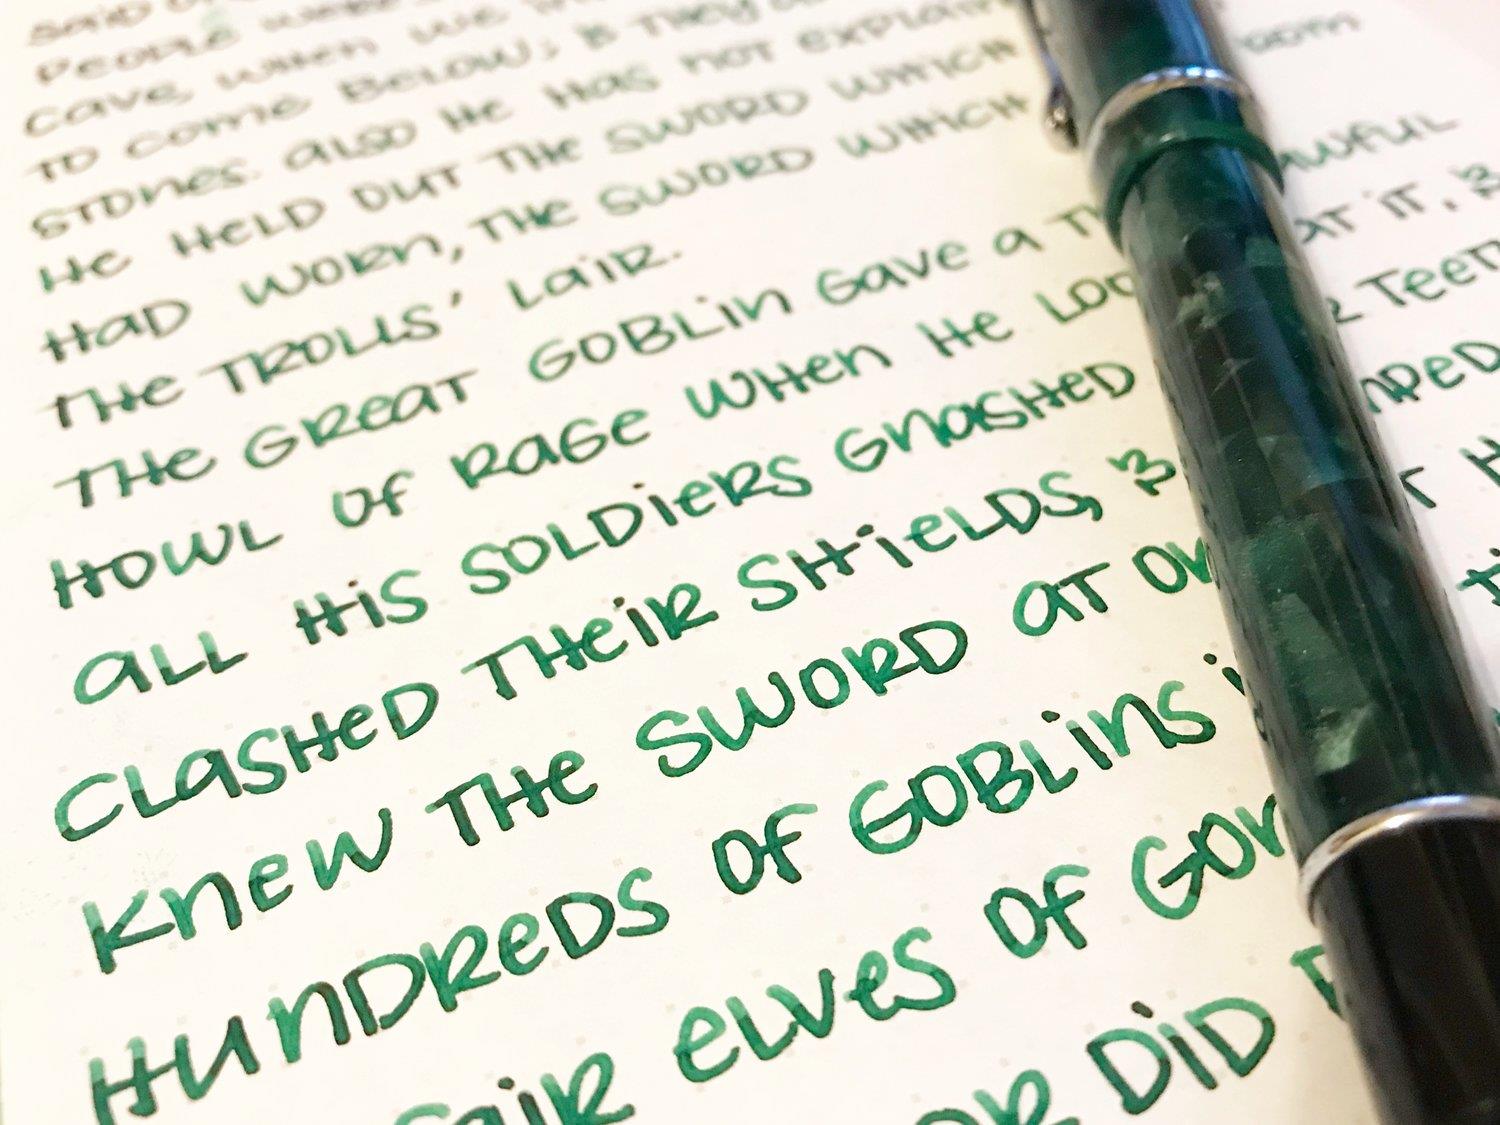 said
people
cave, when we
to come below; & they
stones. also He Has not explain
He Held out the sword which room
Had worn, the sword which
the trolls' lair. awful
the great goblin gave a at it, &
Howl of rage when He teeth
all His soldiers gnashed
clashed their shields, &
knew the sword at
Hundreds of goblins
fair elves of
did